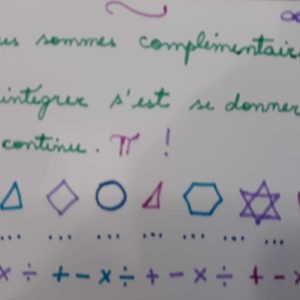 us sommes complémentaire
intégrer s'est se donner
continue. π !
... ... ... ... ... ... ...
× ÷ + - × ÷ + - × ÷ + - ×